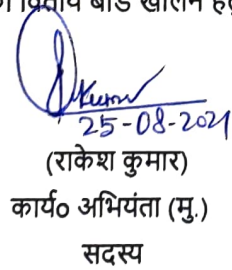 वित्तीय बीड खोलने हेतु
Kumar
25-08-2021
(राकेश कुमार)
कार्य० अभियंता (मु.)
सदस्य